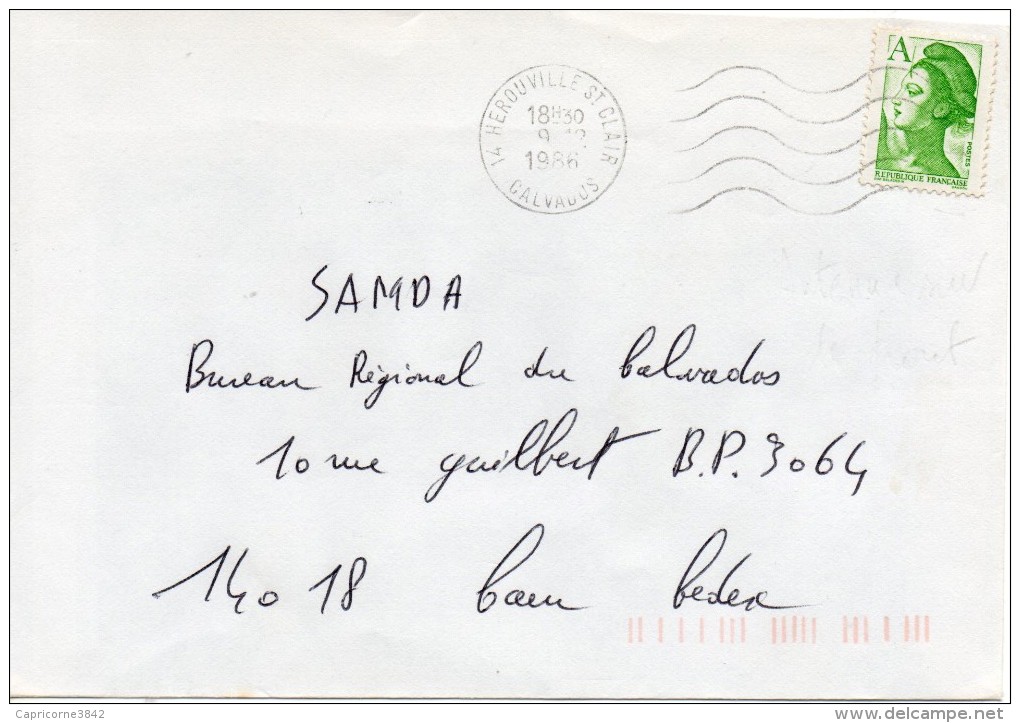 14 HEROUVILLE ST CLAIR
18H30
9 12
1986
CALVADOS
A
POSTES
REPUBLIQUE FRANÇAISE
SAMDA
Bureau Régional du Calvados
10 rue guilbert B.P. 3064
14018 Caen Cedex
Capricorne3842